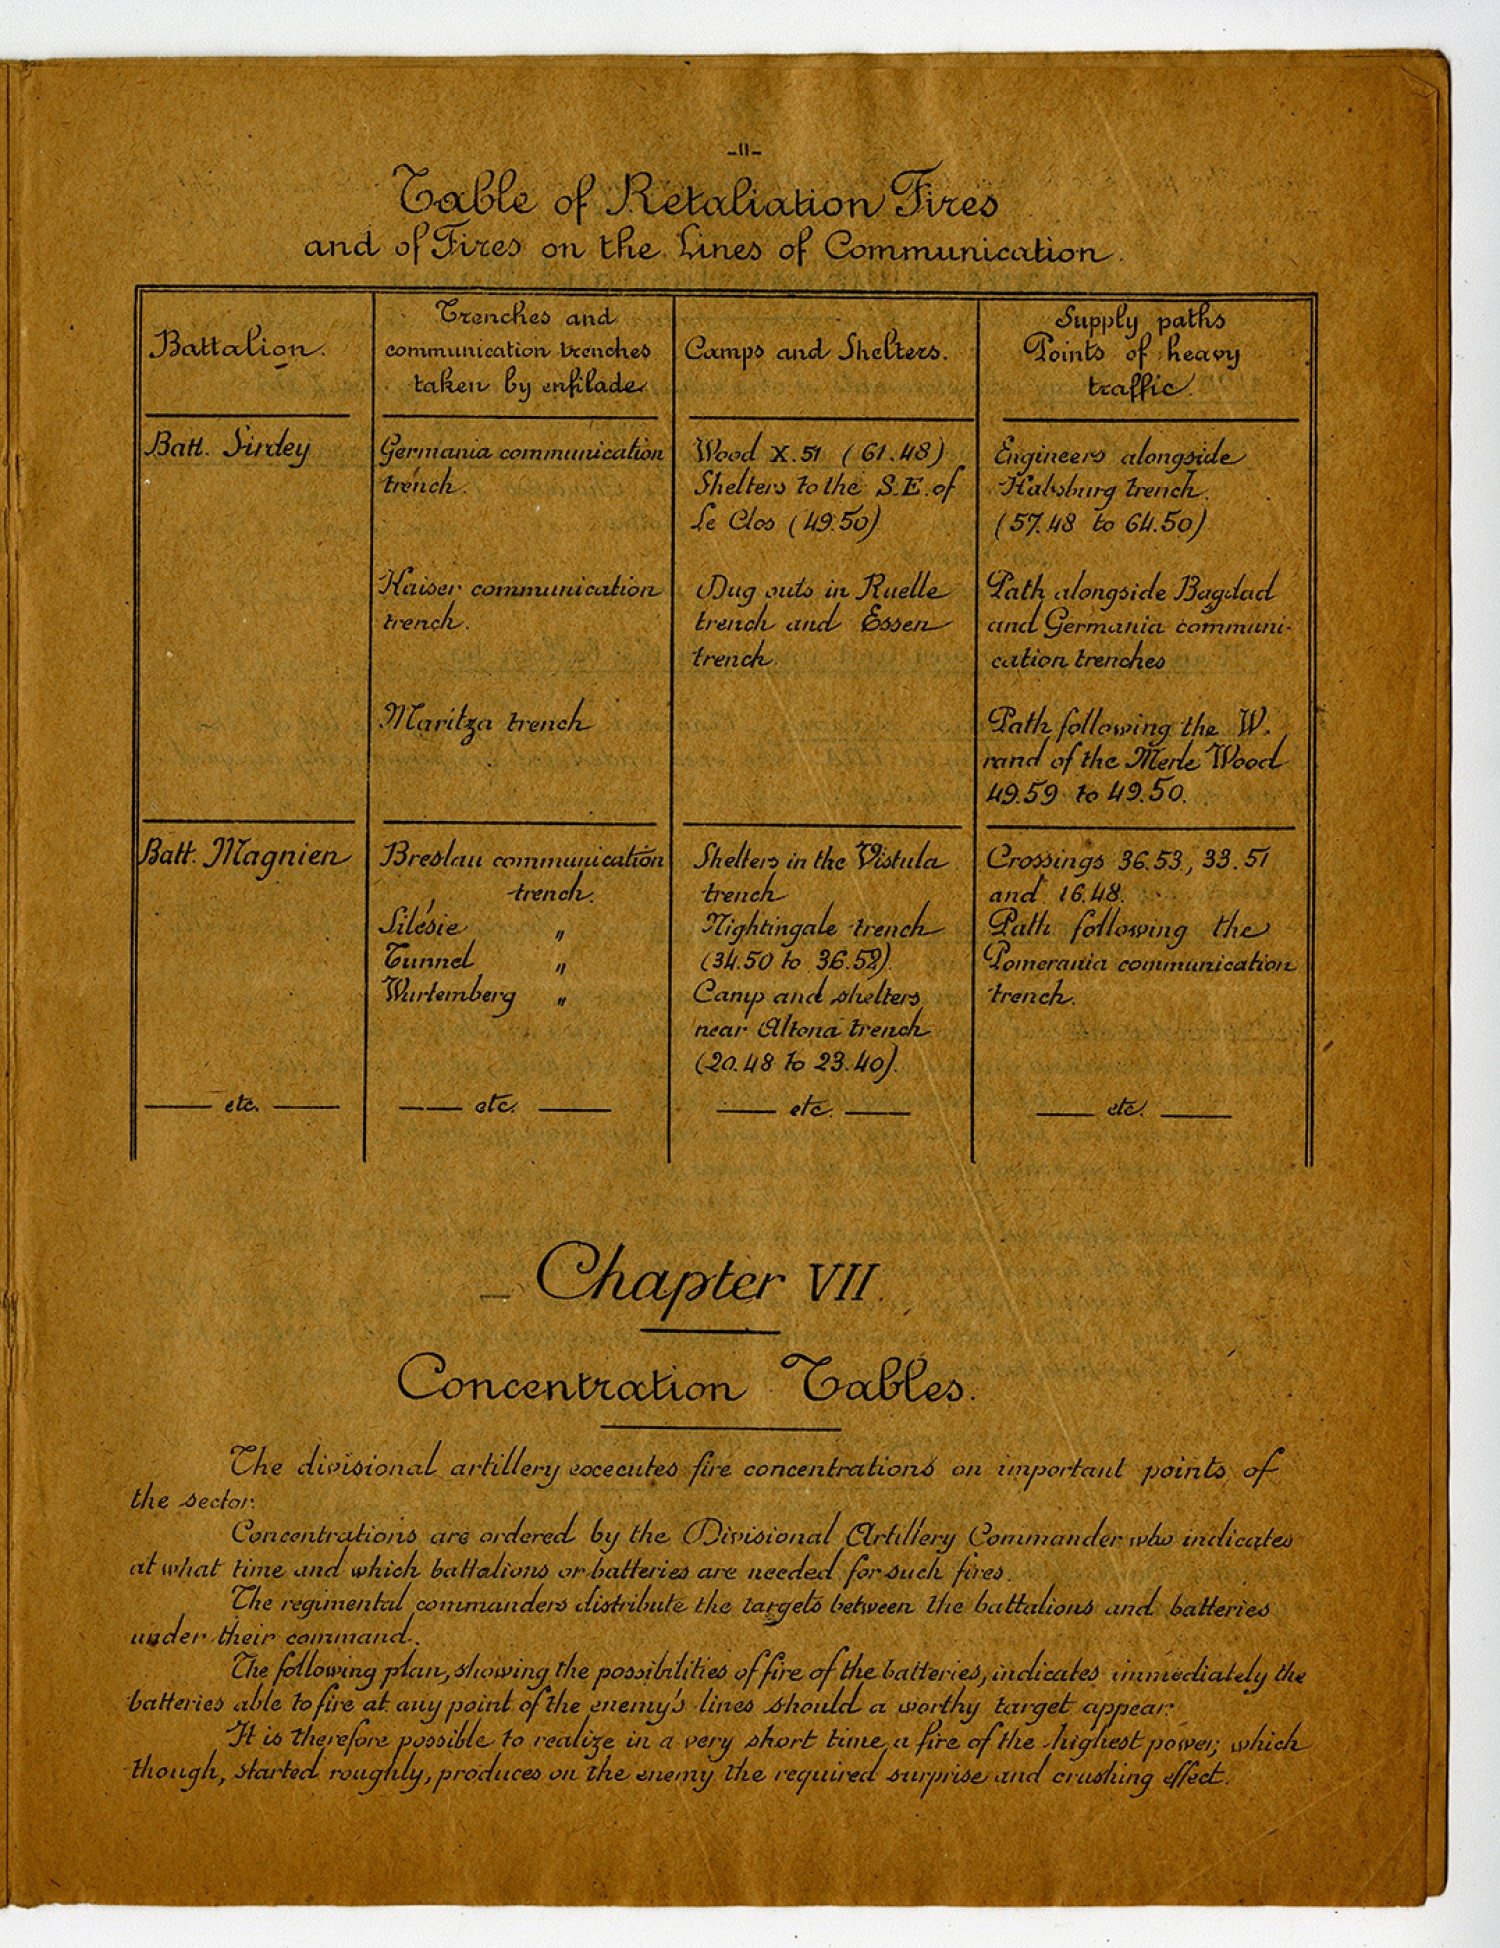 -11-
Table of Retaliation Fires
and of Fires on the Lines of Communication.
Battalion.
Trenches and
communication trenches
taken by enfilade
Camps and Shelters.
Supply paths
Points of heavy
traffic.
Batt. Sirdey
Germania communication
trench.
Kaiser communication
trench.
Maritza trench
Wood X.51 (61.48)
Shelters to the S.E. of
Le Clos (49.50)
Dug outs in Ruelle
trench and Essen
trench
Engineers alongside
Habsburg trench.
(57.48 to 64.50)
Path alongside Bagdad
and Germania communi-
cation trenches
Path following the W.
rand of the Merle Wood
49.59 to 49.50.
Batt. Magnien
Breslau communication
trench.
Silésie "
Tunnel "
Wurtemberg "
Shelters in the Vistula
trench
Nightingale trench
(34.50 to 36.52)
Camp and shelters
near Altona trench
(20.48 to 23.40).
Crossings 36.53, 33.51
and 16.48.
Path following the
Pomerania communication
trench.
— etc. — — etc. — — etc. — — etc. —
Chapter VII.
Concentration Tables.
The divisional artillery excecutes fire concentrations on important points of
the sector.
Concentrations are ordered by the Divisional Artillery Commander who indicates
at what time and which battalions or batteries are needed for such fires.
The regimental commanders distribute the targets between the battalions and batteries
under their command.
The following plan, showing the possibilities of fire of the batteries, indicates immediately the
batteries able to fire at any point of the enemy's lines should a worthy target appear.
It is therefore possible to realize in a very short time a fire of the highest power, which
though, started roughly, produces on the enemy the required surprise and crushing effect.